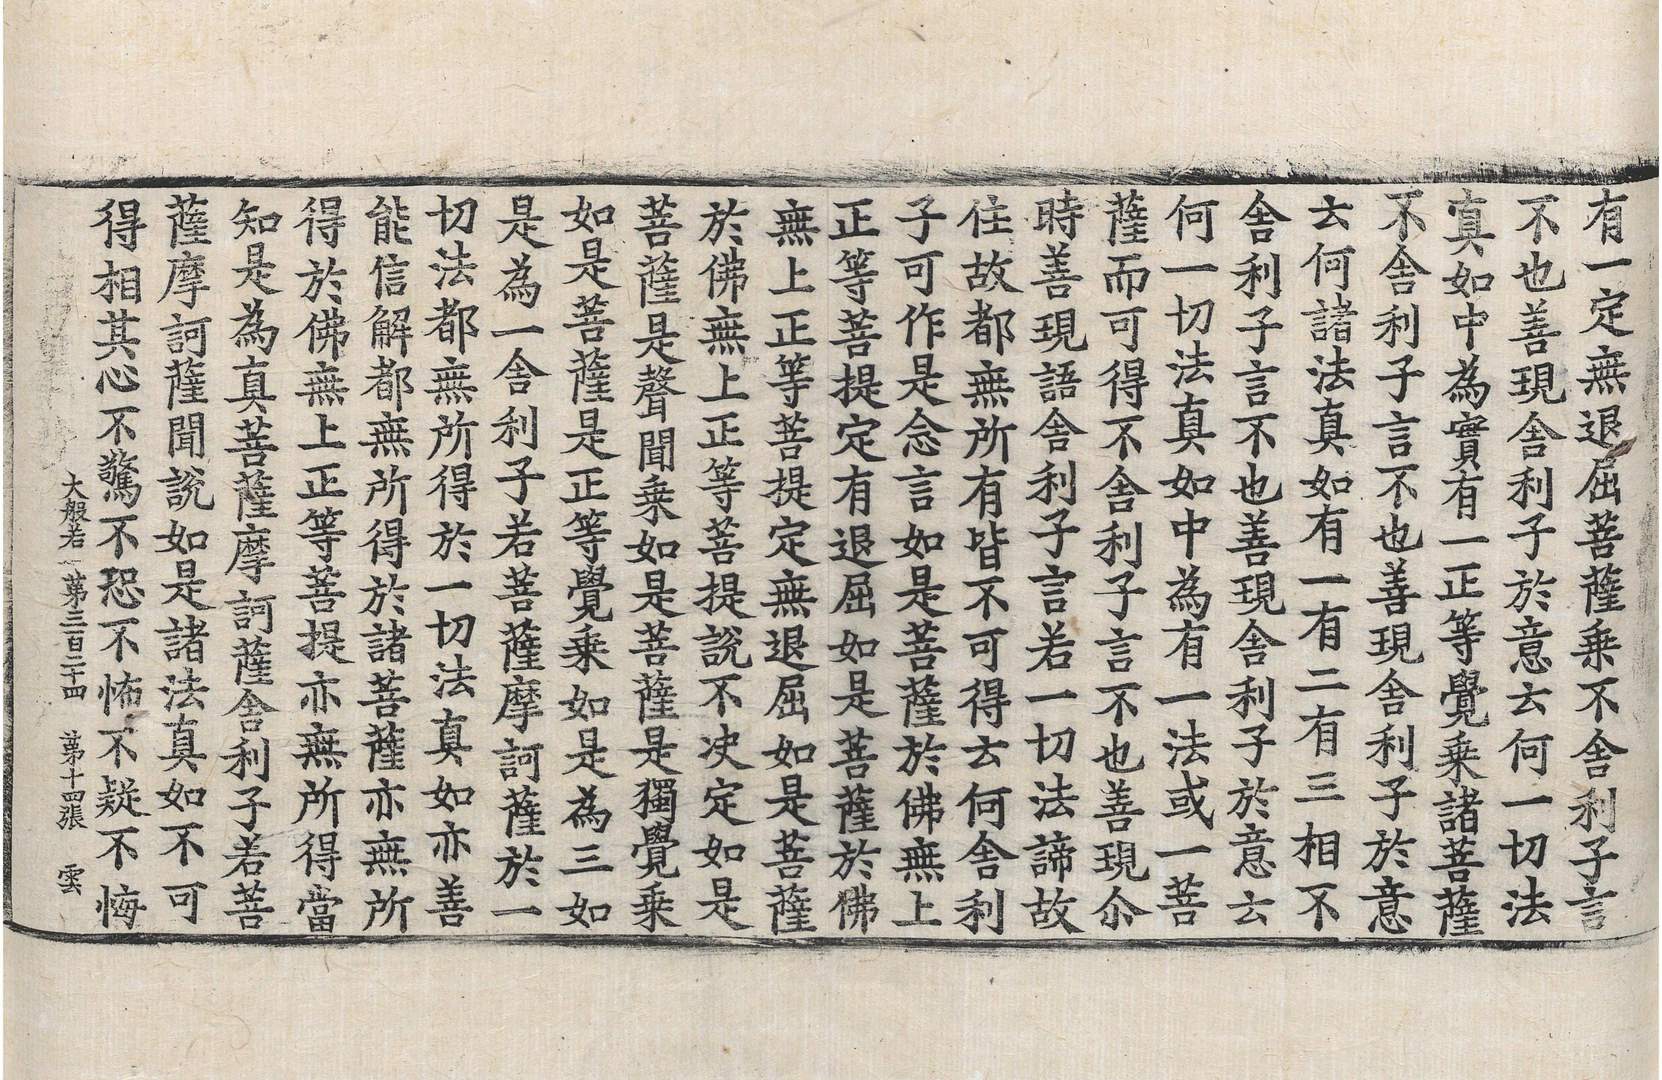 有一定無退屈菩薩乘不舍利子言
不也善現舍利子於意云何一切法
真如中為實有一正等覺乘諸菩薩
不舍利子言不也善現舍利子於意
云何諸法真如有一有二有三相不
舍利子言不也善現舍利子於意云
何一切法真如中為有一法或一菩
薩而可得不舍利子言不也善現尒
時善現語舍利子言若一切法諦故
住故都無所有皆不可得云何舍利
子可作是念言如是菩薩於佛無上
正等菩提定有退屈如是菩薩於佛
無上正等菩提定無退屈如是菩薩
於佛無上正等菩提說不决定如是
菩薩是聲聞乘如是菩薩是獨覺乘
如是菩薩是正等覺乘如是為三如
是為一舍利子若菩薩摩訶薩於一
切法都無所得於一切法真如亦善
能信解都無所得於諸菩薩亦無所
得於佛無上正等菩提亦無所得當
知是為真菩薩摩訶薩舍利子若菩
薩摩訶薩聞說如是諸法真如不可
得相其心不驚不恐不怖不疑不悔
大般若 第三百二十四 第十四張 雲